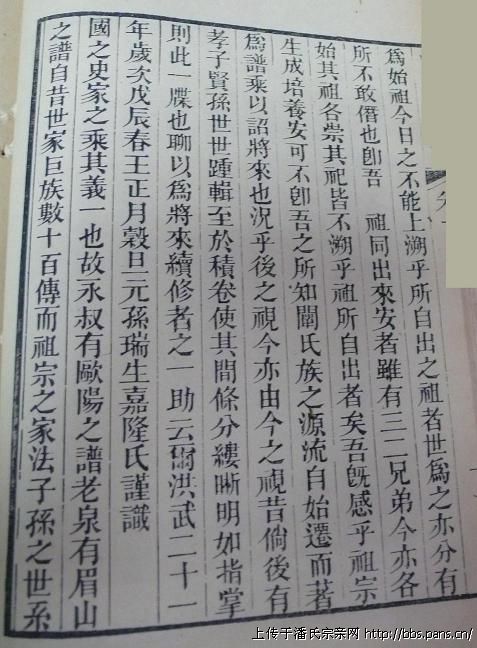 爲始祖今日之不能上溯乎所自出之祖者世爲之亦分有
所不敢僭也卽吾　祖同出來安者雖有三二兄弟今亦各
始其祖各崇其祀皆不溯乎祖所自出者矣吾旣感乎祖宗
生成培養安可不卽吾之所知闡氏族之源流自始遷而著
爲譜乘以詔將來也況乎後之視今亦由今之視昔倘後有
孝子賢孫世世踵輯至於積卷使其間條分縷晰明如指掌
則此一牒也聊以爲將來續修者之一助云爾洪武二十一
年歲次戊辰春王正月穀旦元孫瑞生嘉隆氏謹識
國之史家之乘其義一也故永叔有歐陽之譜老泉有眉山
之譜自昔世家巨族數十百傳而祖宗之家法子孫之世系
上传于潘氏宗亲网 http://bbs.pans.cn/